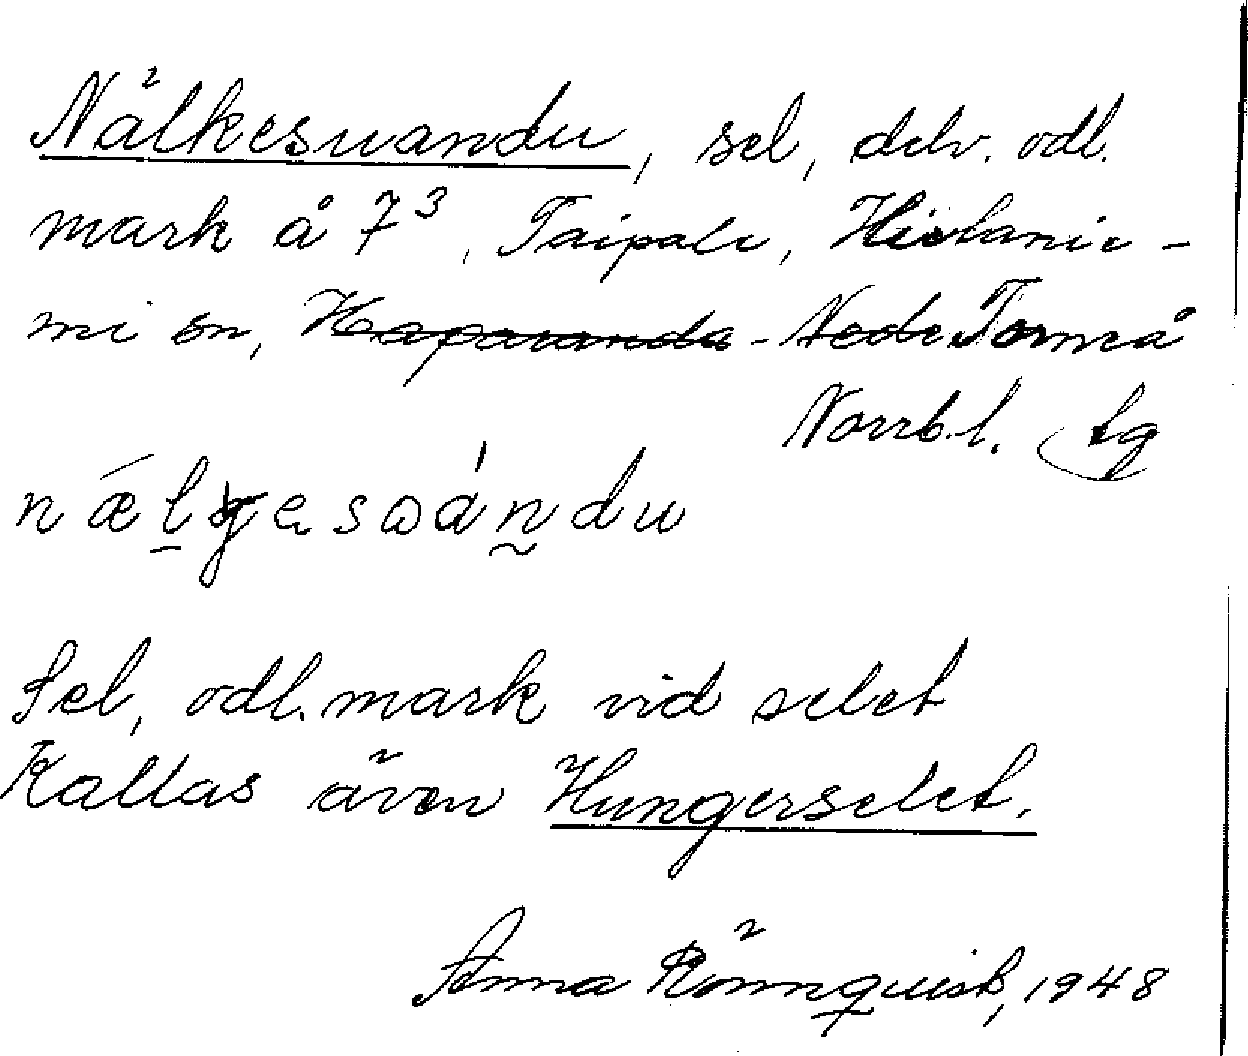 Nälkesuandu, sel, delv. odl.
mark å 7³, Taipale, Hietanie-
mi sn, Haparanda - Neder Torneå
Norrb. l.
nǽlgesωándu
Sel, odl. mark vid selet
Kallas även Hungerselet.
Anna Rönnquist, 1948